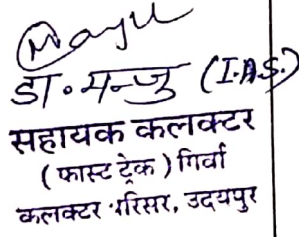 Manju
डा॰ मन्जु (I.A.S.)
सहायक कलक्टर
( फास्ट ट्रेक ) गिर्वा
कलक्टर परिसर, उदयपुर